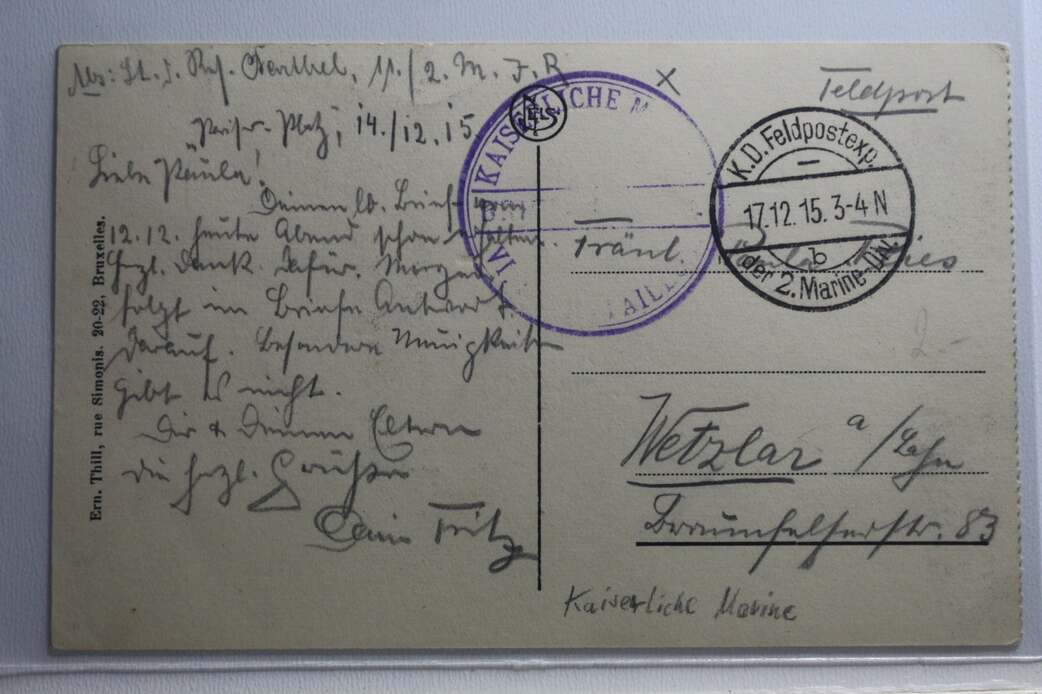 Abs: Lt. d. Res. 11./2. M. I. R
"Pariser-Platz", 14./12.15.
Liebe Paula!
Deinen lb. Brief vom
12.12. heute Abend schon erhalten.
Herzl. Dank dafür. Morgen
folgt im Briefe Antwort
darauf. Besondere Neuigkeiten
gibt es nicht.
Dir & Deinen Eltern
die herzl. Grüße
Dein Fritz
Ern. Thill, rue Simonis. 20-22, Bruxelles.
KAISERLICHE M
ELS
Feldpost
K.D. Feldpostexp.
17.12.15. 3-4 N
b
der 2. Marine-Div.
Fräul. Paula
2-
Wetzlar a/Lahn
Braunfelserstr. 83
Kaiserliche Marine